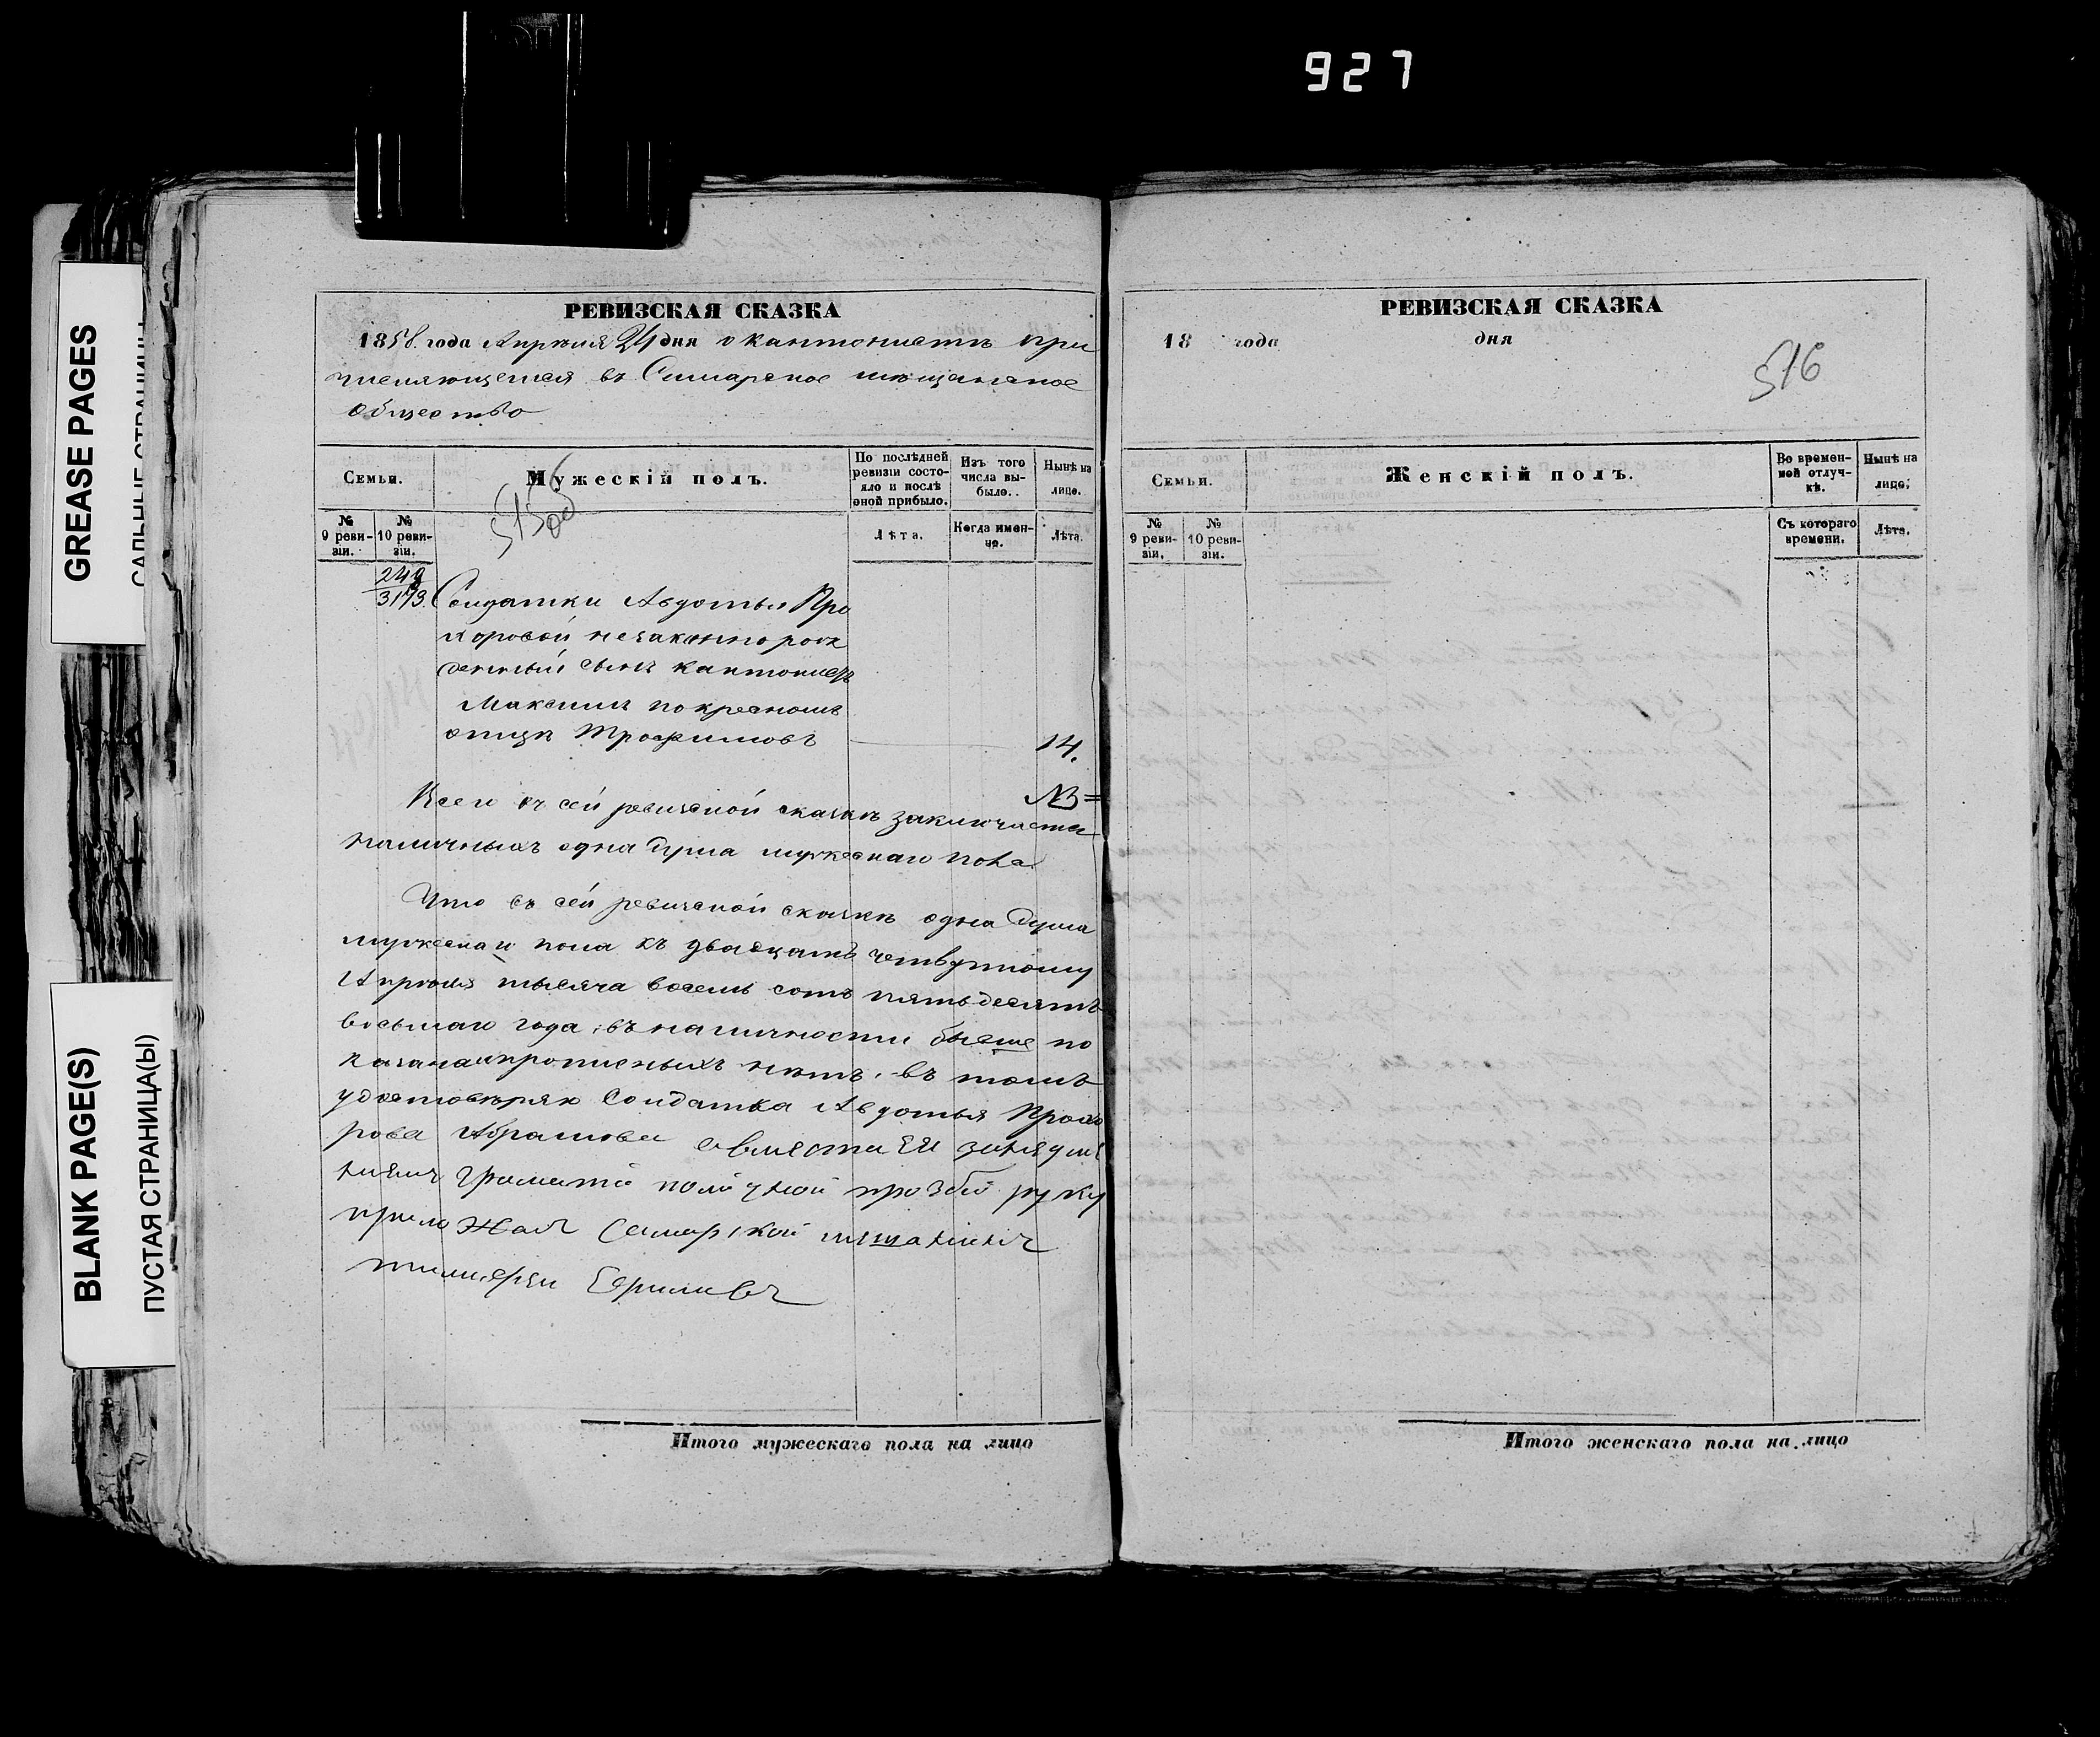 927
GREASE PAGES
САЛЬНЫЕ СТРАНИЦЫ
BLANK PAGE(S)
ПУСТАЯ СТРАНИЦА(Ы)
РЕВИЗСКАЯ СКАЗКА
1858 года Апреля 24 дня о кантонисте при
писляющемся въ Самарское мещанское
общество
Семьи.
Мужескій полъ.
По послѣдней ревизіи состояло и послѣ оной прибыло.
Изъ того числа выбыло.
Нынѣ на лицо.
№ 9 ревизіи.
№ 10 ревизіи.
Лѣта.
Когда именно.
Лѣта.
515 об
249
3173.
Солдатки Авдотьи Про
хоровой незаконнорож
денный сынъ кантонистъ
Максимъ по крестномъ
отцѣ Трофимовъ 14.
Всего въ сей ревизской сказкѣ заключается
наличныхъ одна душа мужескаго пола
Что въ сей ревизской сказкѣ одна душа
мужескаго пола къ двадцать четвертому
Апрѣля тысяча восемь сотъ пятьдесятъ
восьмаго года, въ наличности бывше по
казана и прописныхъ нѣтъ, въ томъ
удостовѣряю Солдатка Авдотья Прохо
рова Абрамова а вместа Ея занеуме
ниемъ Грамати поличной прозби руку
приложалъ Самарской мещанинъ
Ефимовъ
Итого мужескаго пола на лицо
РЕВИЗСКАЯ СКАЗКА
18 года дня
516
Семьи.
Женскій полъ.
Во временной отлучкѣ.
Нынѣ на лицо.
№ 9 ревизіи.
№ 10 ревизіи.
Съ котораго времени.
Лѣта.
Итого женскаго пола на лицо